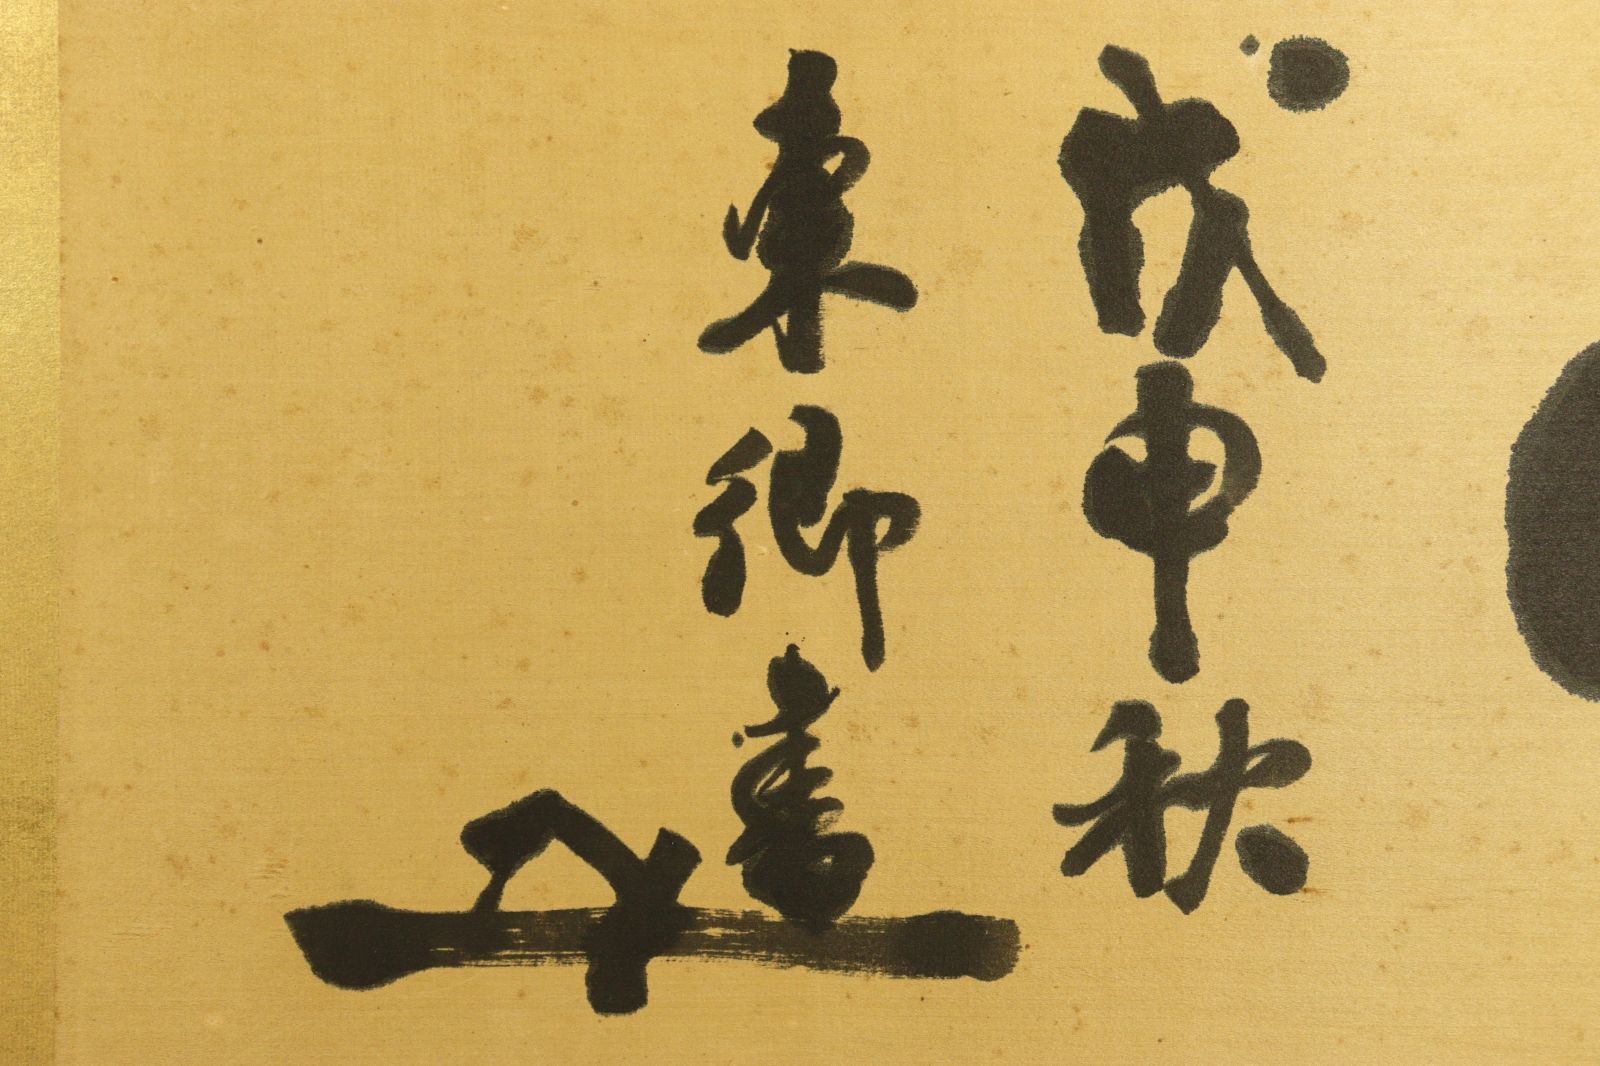 戊申秋
東郷書